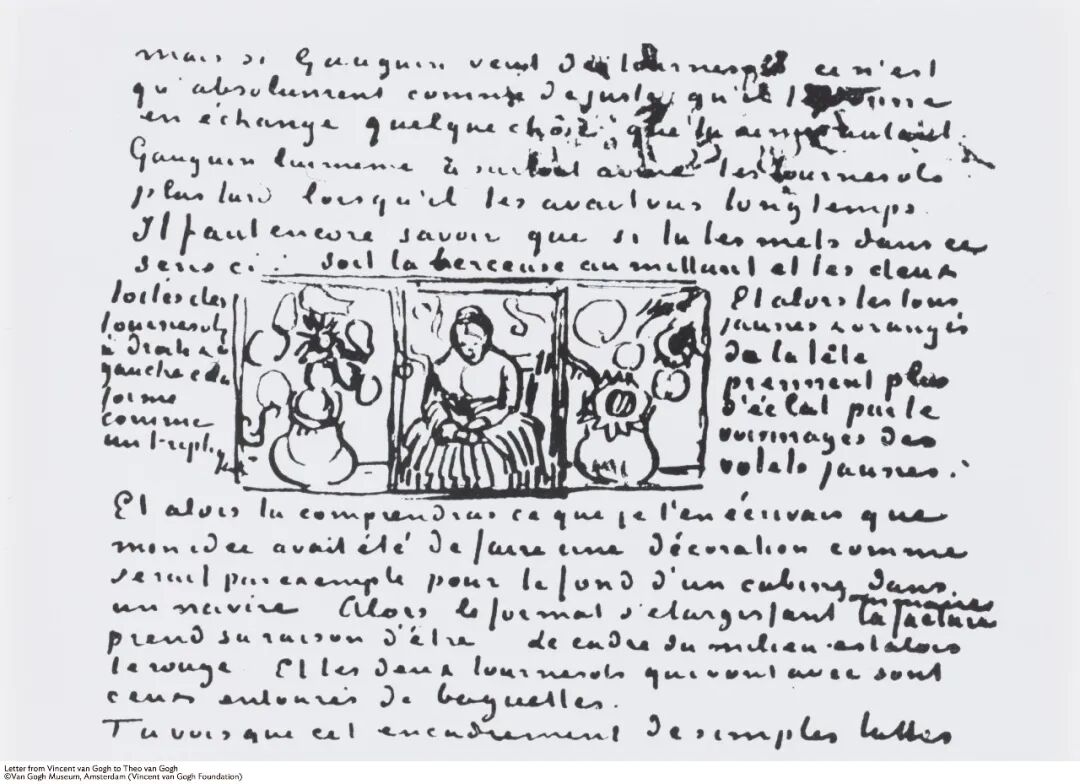 mais si Gauguin veut des tournesols ce n'est
qu'absolument comme de juste qu'il te donne
en échange quelque chose que tu aimes autant.
Gauguin lui meme a surtout aimé les tournesols
plus tard lorsqu'il les avait vus longtemps.
Il faut encore savoir que si tu les mets dans ce
sens ci : soit la berceuse au millant et les deux
toiles des
tournesols
à droite &
gauche cela
forme
comme
un tryptique
Et alors les tons
jaunes & orangés
de la tête
prennent plus
d'éclat par le
voisinages des
volets jaunes.
Et alors tu comprendras ce que je t'en écrivais que
mon idee avait été de faire une décoration comme
serait par exemple pour le fond d'un cabine dans
un navire Alors le format s'elargissant la facture
sommaire
prend sa raison d'être le cadre du milieu est alors
le rouge Et les deux tournesols qui vont avec sont
ceux entourés de baguettes.
Tu vois que cet encadrement de simples lattes
Letter from Vincent van Gogh to Theo van Gogh
©Van Gogh Museum, Amsterdam (Vincent van Gogh Foundation)